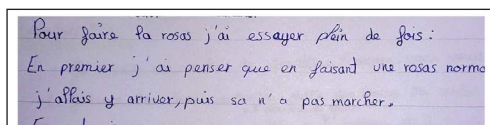 Pour faire la rosas j'ai essayer plein de fois :
En premier j'ai penser que en faisant une rosas norma
j'allais y arriver, puis sa n'a pas marcher.